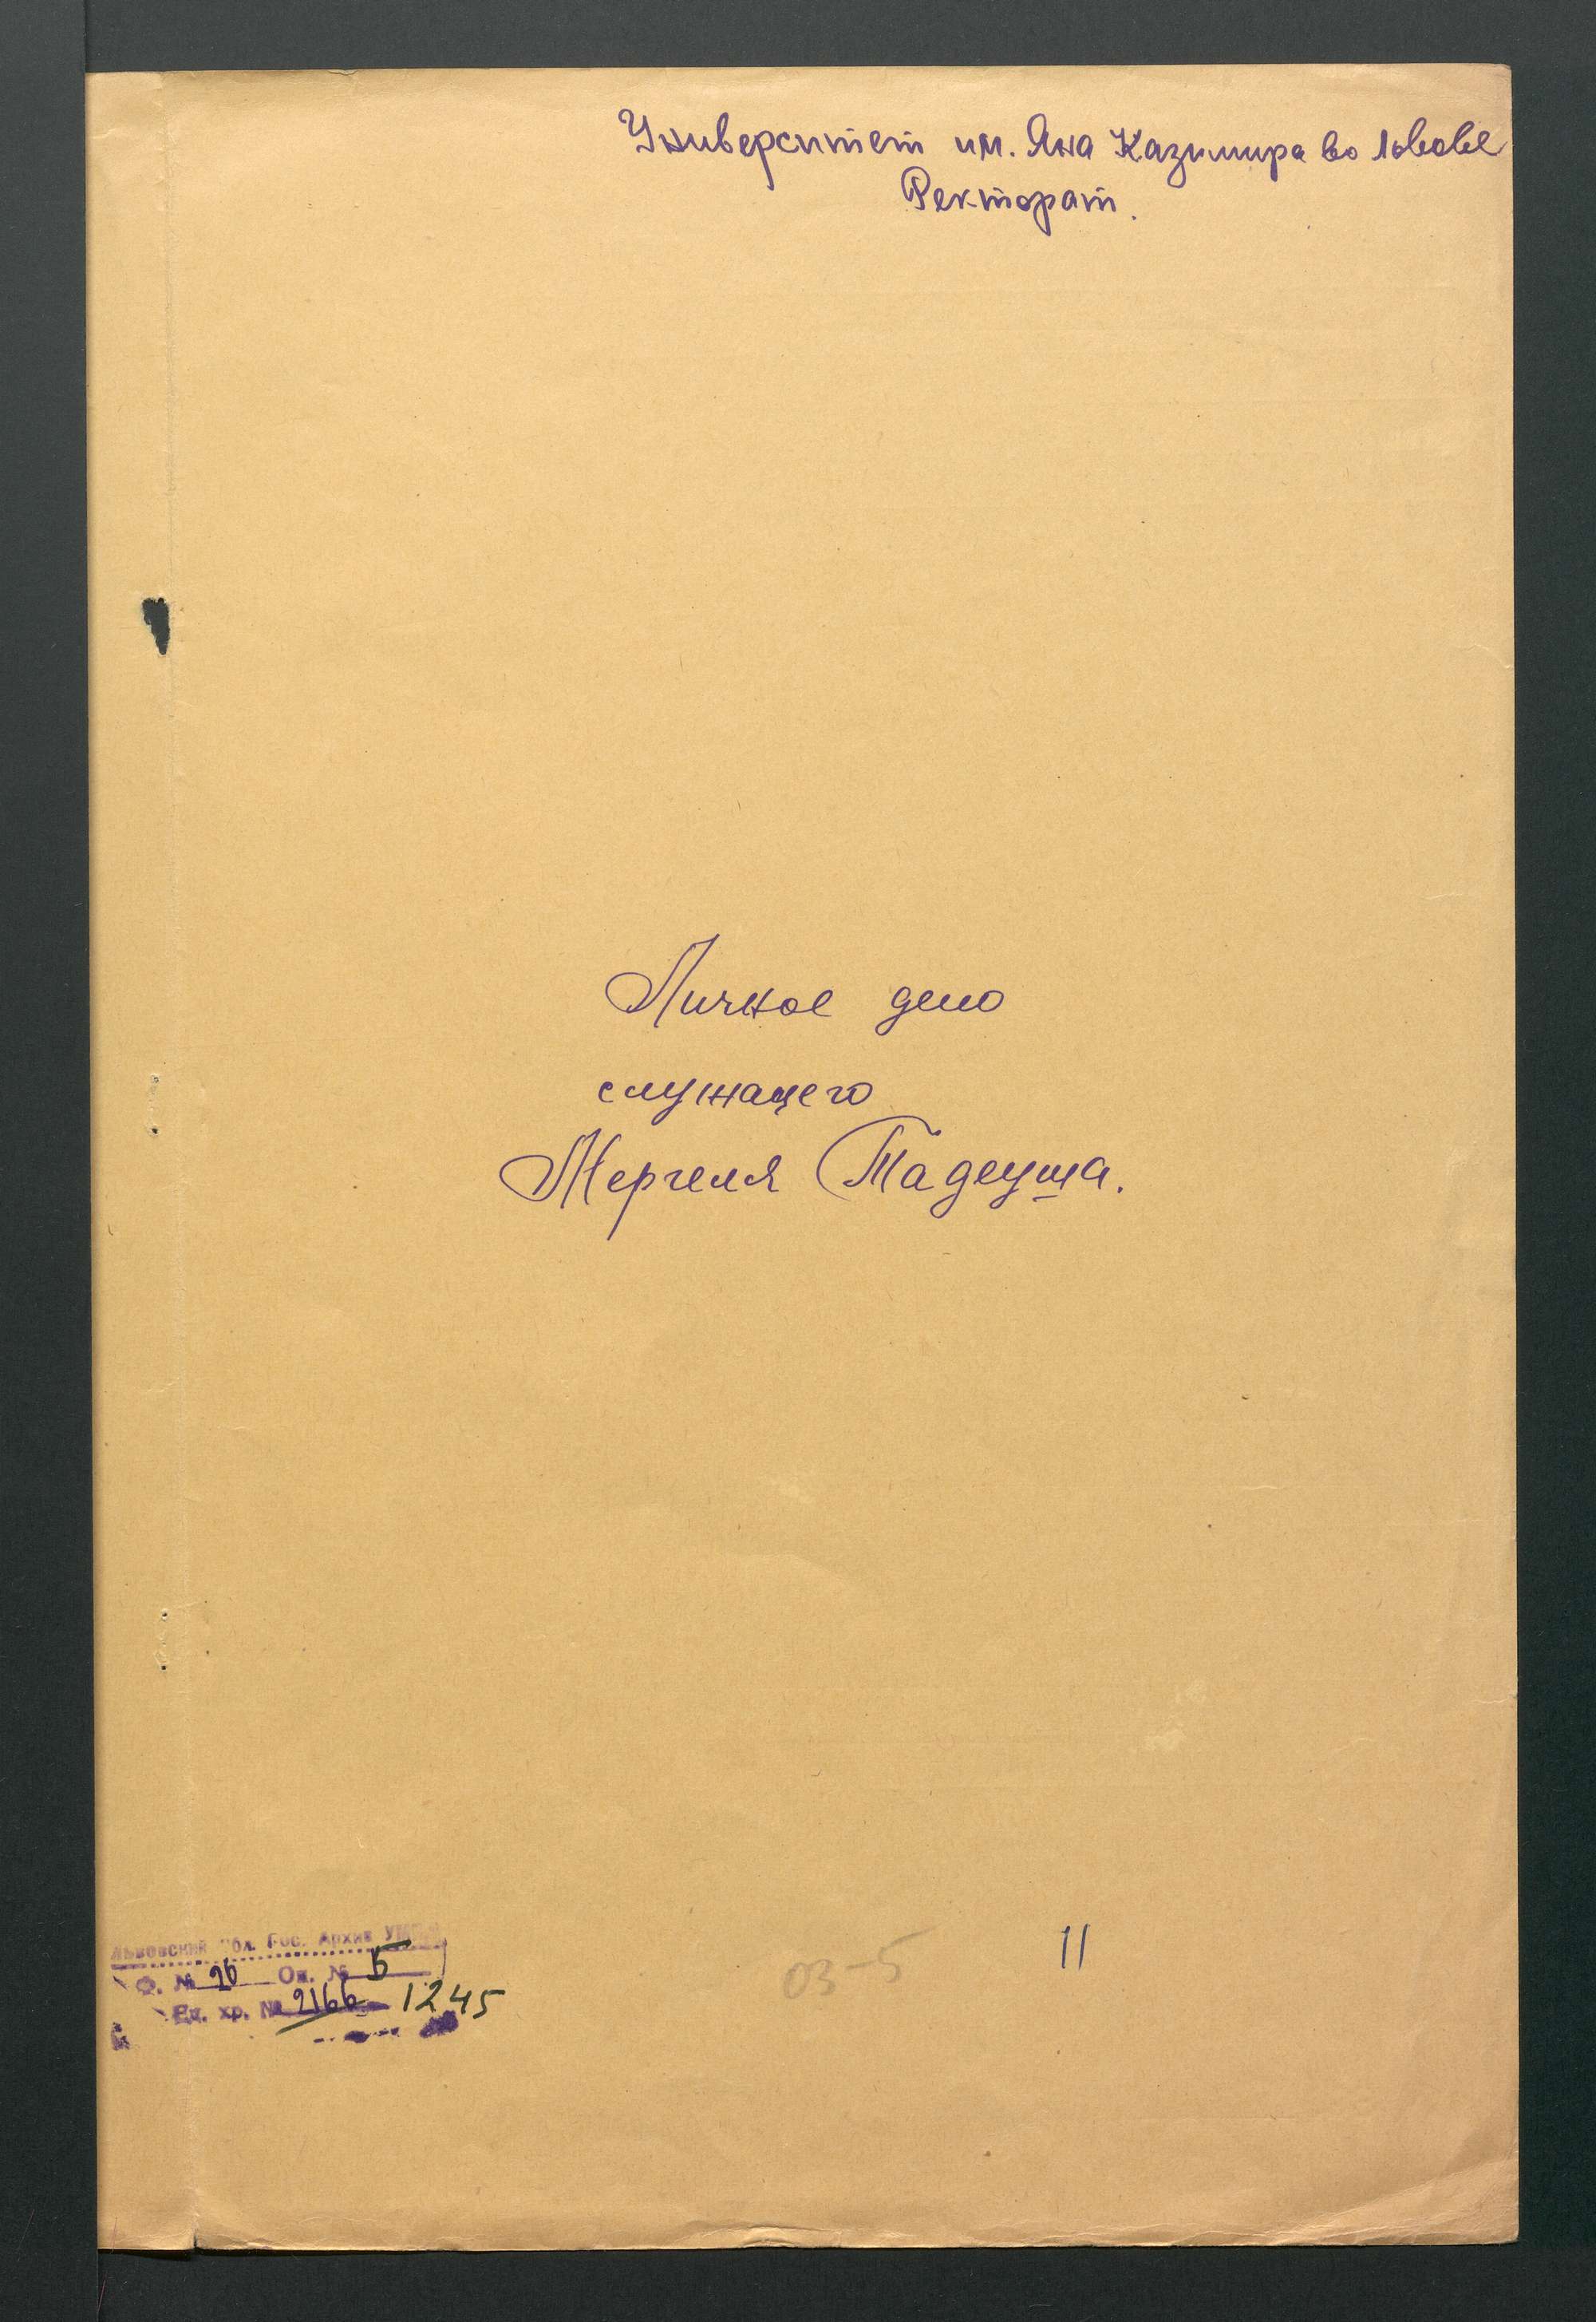 Университет им. Яна Казимира во Львове
Ректорат.
Личное дело
служащего
Мергеля Тадеуша.
Львовский Обл. Гос. Архив
Ф. № 26 Оп. № 5
Ед. хр. № 2166 1245
03-5
11